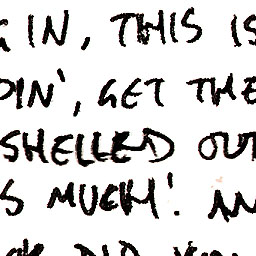 G IN, THIS IS
DIN', GET THE
SHELLED OUT
S MUCH'. AN
DID YOU